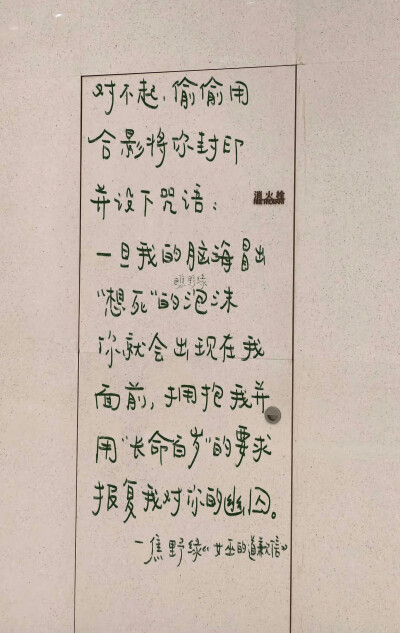 对不起,偷偷用
合影将你封印
并设下咒语:
消火栓
一旦我的脑海冒出
焦野绿
“想死”的泡沫
你就会出现在我
面前,拥抱我并
用“长命百岁”的要求
报复我对你的幽囚。
—焦野绿《女巫的道歉信》